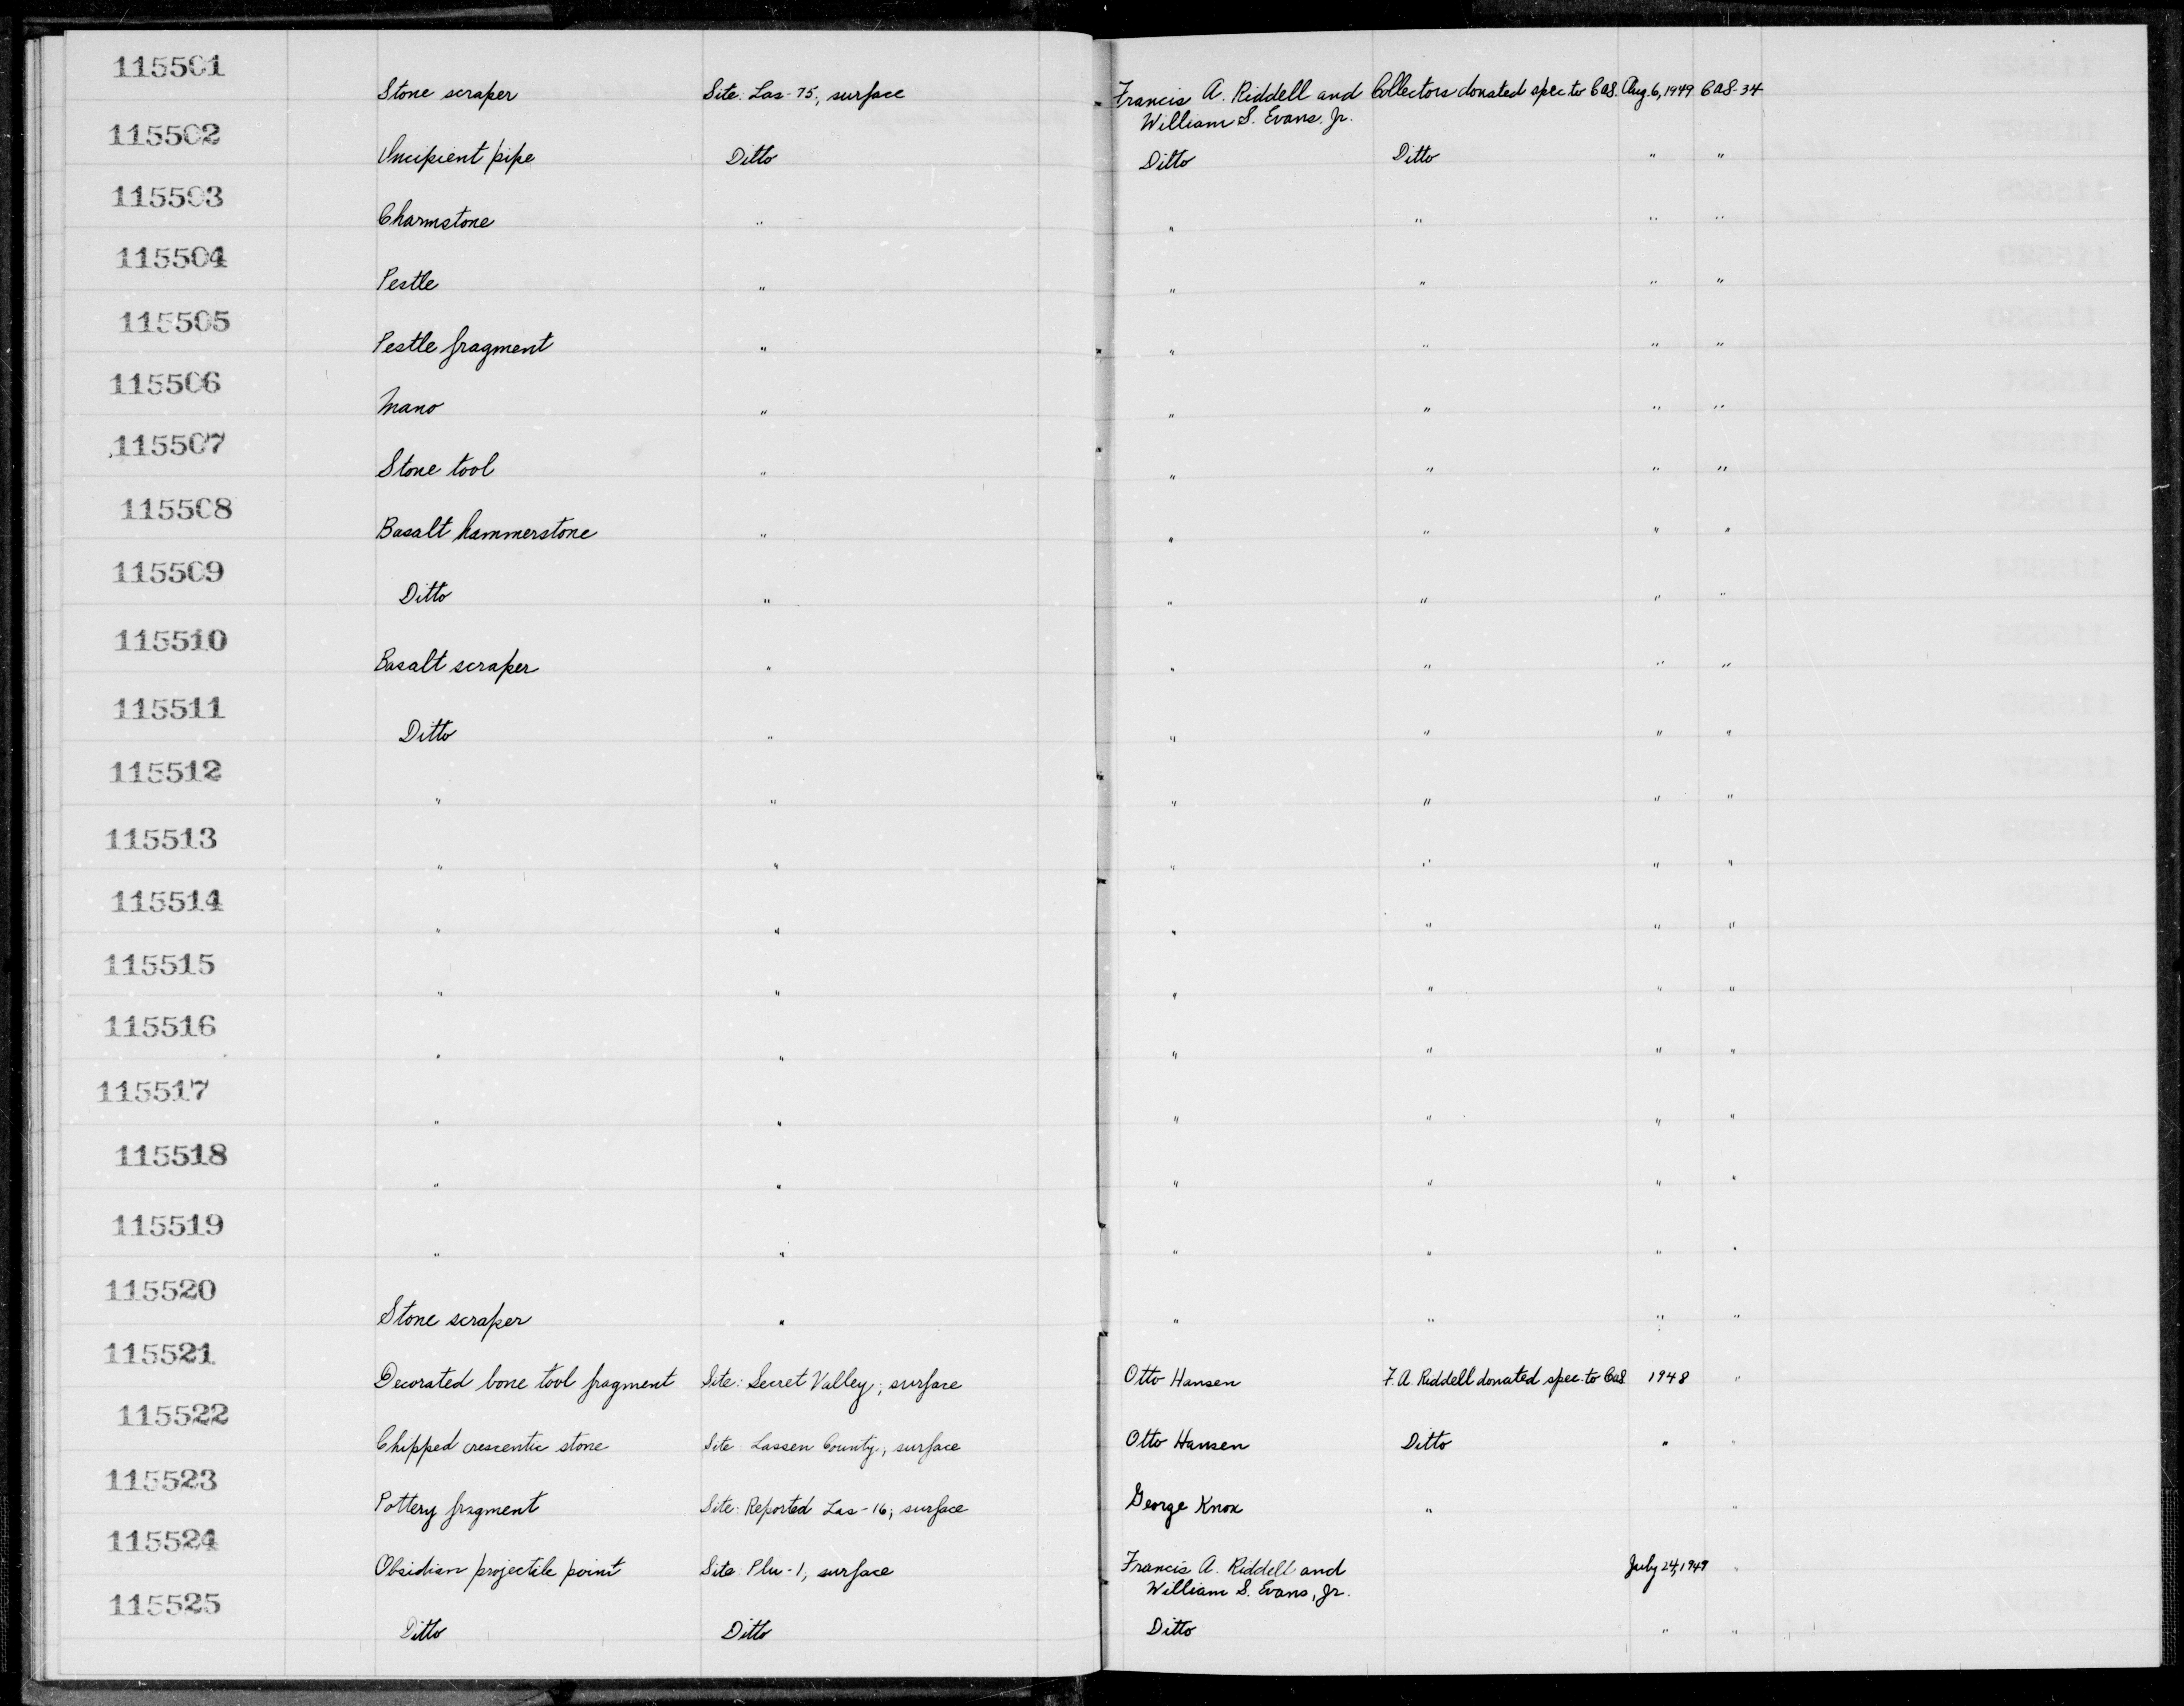 115501
Stone scraper Site. Las-75, surface Francis A. Riddell and Collectors donated spec to CAS. Aug. 6, 1949 CAS-34
William S. Evans, Jr.
115502
Incipient pipe Ditto Ditto Ditto " "
115503
Charmstone " " " " "
115504
Pestle " " " " "
115505
Pestle fragment " " " " "
115506
Mano " " " " "
115507
Stone tool " " " " "
115508
Basalt hammerstone " " " " "
115509
Ditto " " " " "
115510
Basalt scraper " " " " "
115511
Ditto " " " " "
115512
" " " " " "
115513
" " " " " "
115514
" " " " " "
115515
" " " " " "
115516
" " " " " "
115517
" " " " " "
115518
" " " " " "
115519
" " " " " "
115520
Stone scraper " " " " "
115521
Decorated bone tool fragment Site: Secret Valley; surface Otto Hansen F. A. Riddell donated spec. to CAS 1948 "
115522
Chipped crescentic stone Site: Lassen County; surface Otto Hansen Ditto " "
115523
Pottery fragment Site: Reported Las-16; surface George Knox " "
115524
Obsidian projectile point Site: Plu-1, surface Francis A. Riddell and July 24, 1949 "
William S. Evans, Jr.
115525
Ditto Ditto Ditto " "